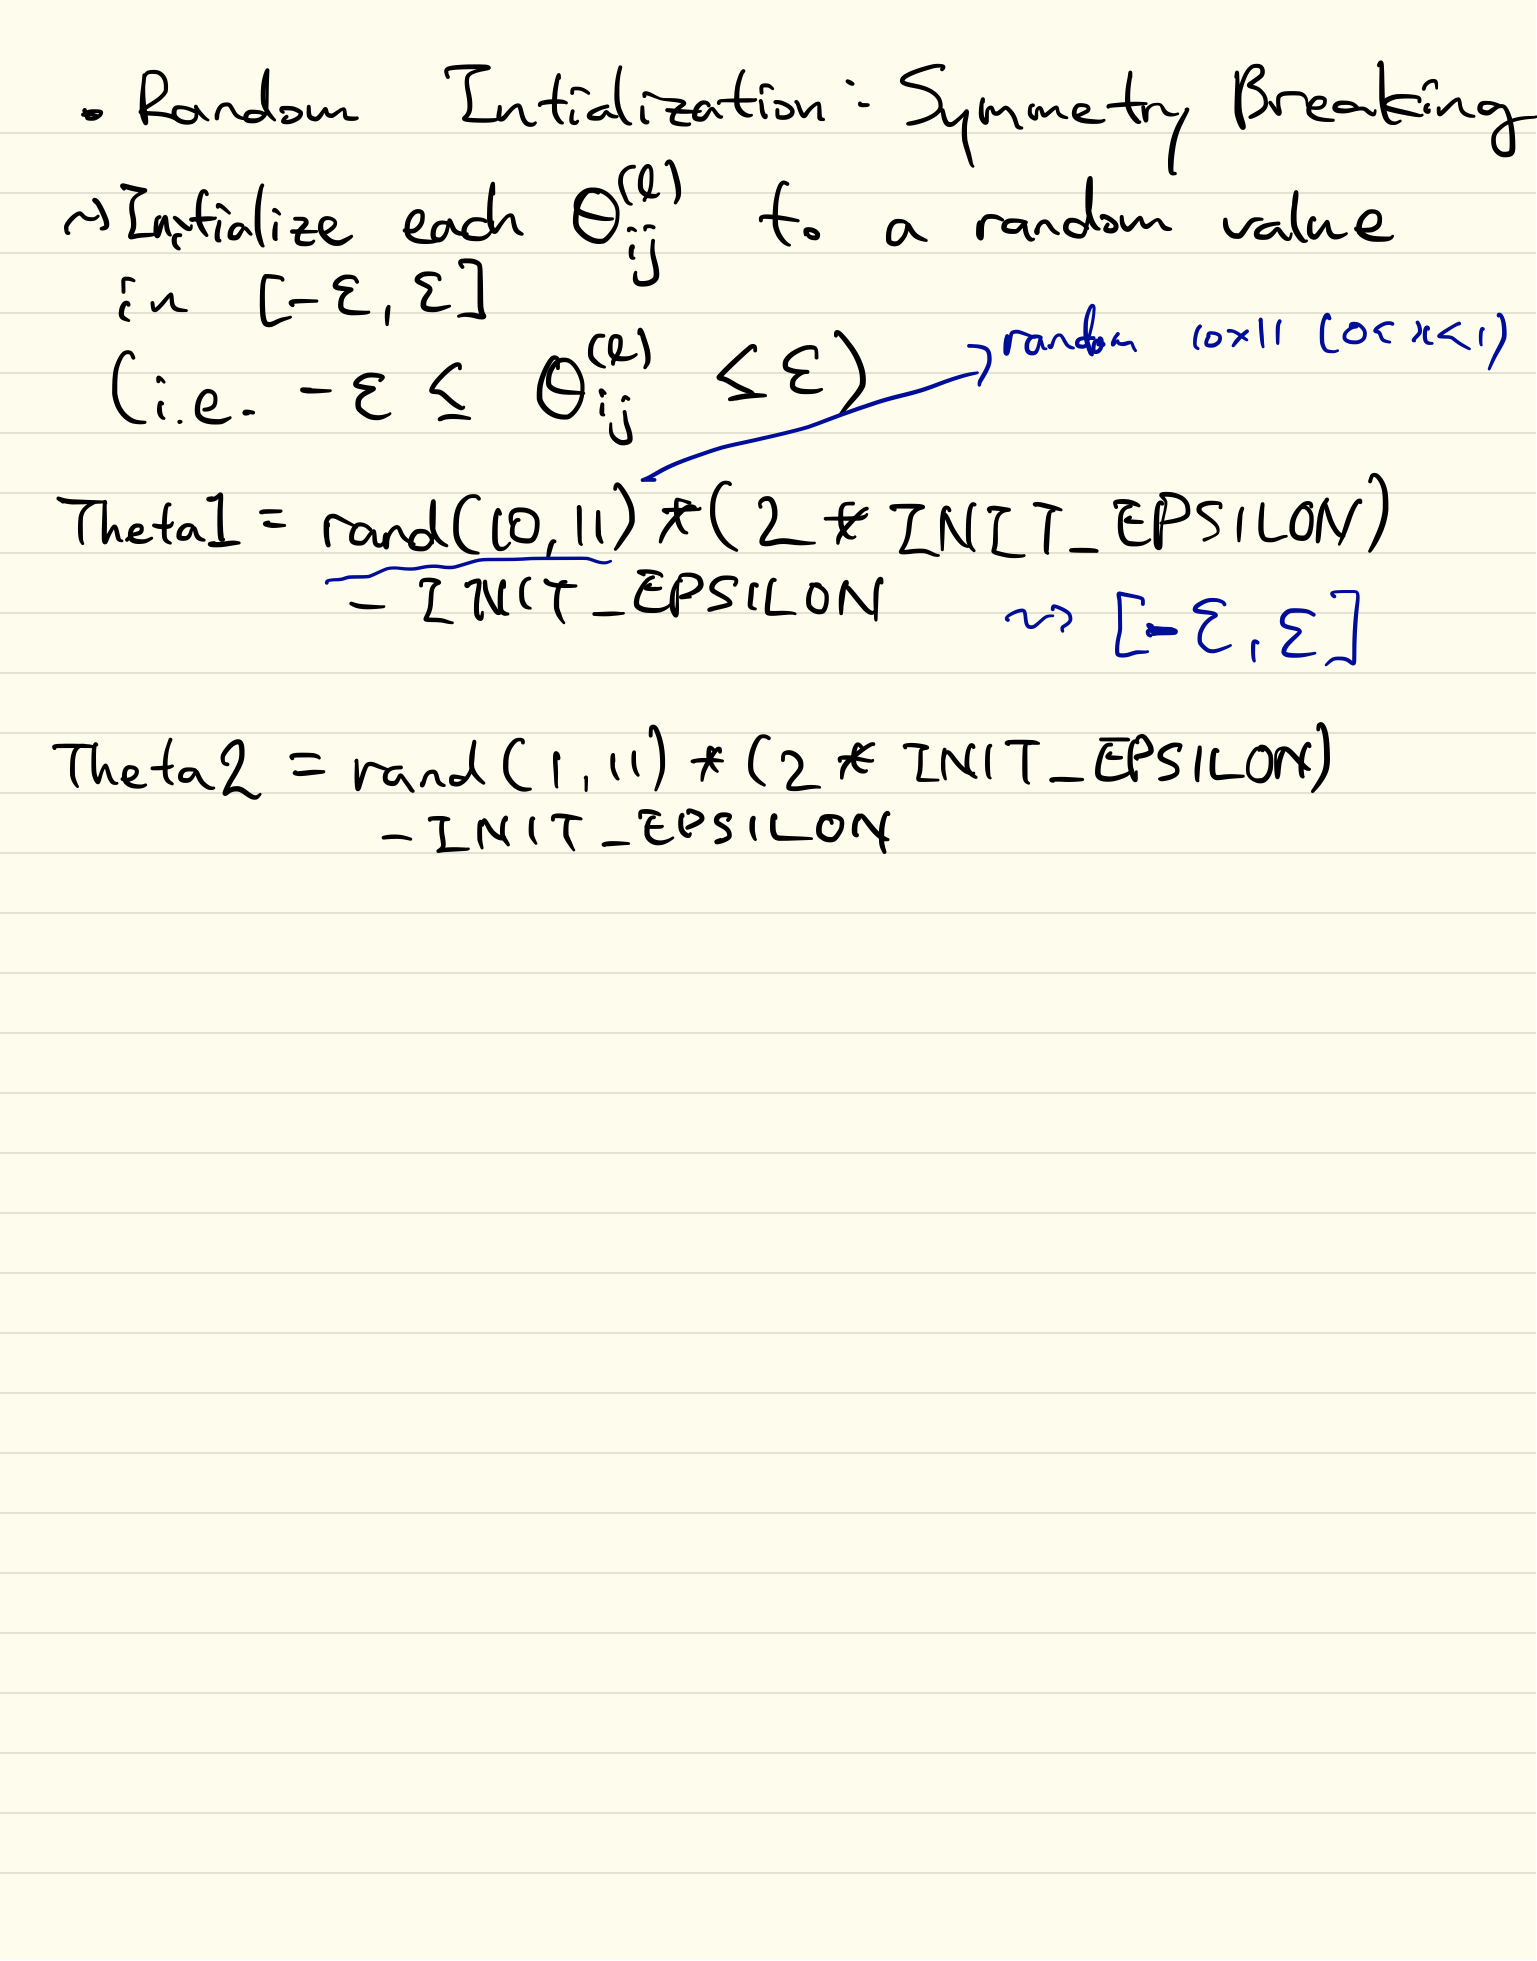 • Random Intialization: Symmetry Breaking
~> Initialize each Θij^(l) to a random value
in [-ε, ε]
(i.e. -ε ≤ Θij^(l) ≤ ε)
random 10x11 (0< x<<1)
Theta1 = rand(10,11) * (2 * INIT_EPSILON)
- INIT_EPSILON ~> [-ε, ε]
Theta2 = rand(1,11) * (2 * INIT_EPSILON)
- INIT_EPSILON